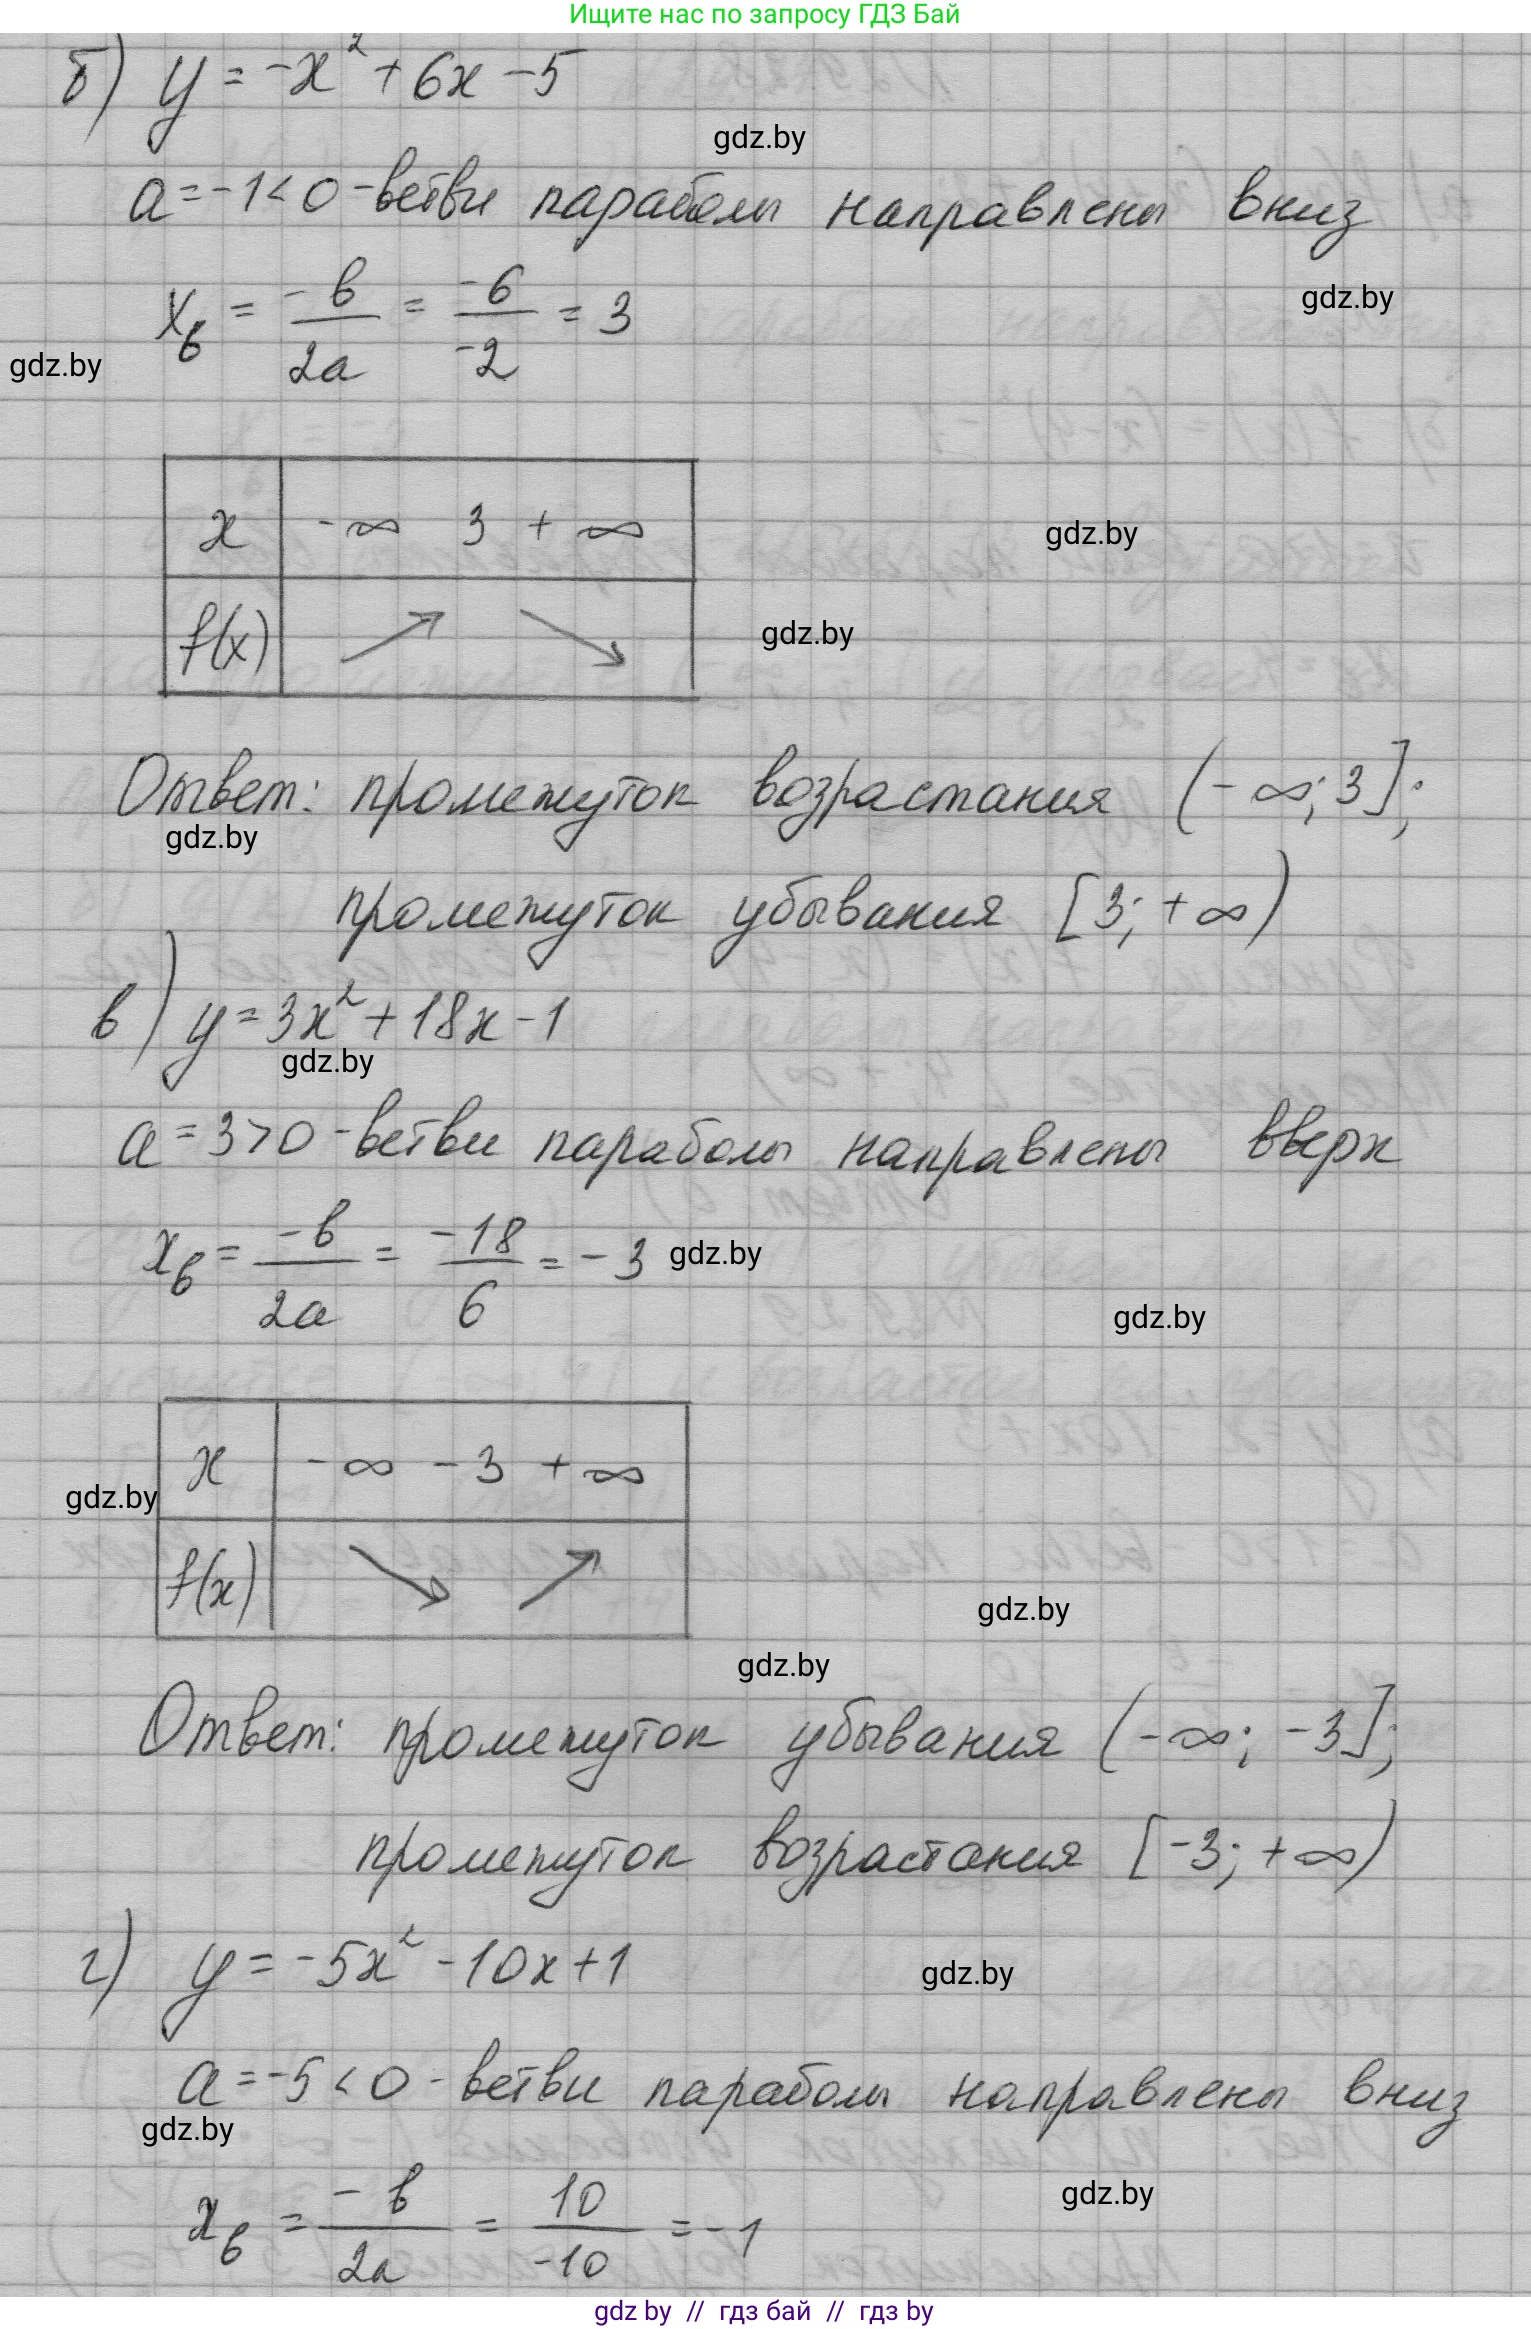 Ищите нас по запросу ГДЗ Бай
б) y = -x² + 6x - 5
gdz.by
a = -1 < 0 - ветви параболы направлены вниз
gdz.by
x_в = -b/2a = -6/-2 = 3
gdz.by
x -∞ 3 +∞
gdz.by
f(x) ↗ ↘
gdz.by
Ответ: промежуток возрастания (-∞; 3];
gdz.by
промежуток убывания [3; +∞)
в) y = 3x² + 18x - 1
gdz.by
a = 3 > 0 - ветви параболы направлены вверх
x_в = -b/2a = -18/6 = -3
gdz.by
gdz.by
x -∞ -3 +∞
gdz.by
f(x) ↘ ↗
gdz.by
gdz.by
Ответ: промежуток убывания (-∞; -3];
промежуток возрастания [-3; +∞)
г) y = -5x² - 10x + 1
gdz.by
a = -5 < 0 - ветви параболы направлены вниз
gdz.by
x_в = -b/2a = 10/-10 = -1
gdz.by
gdz by // гдз бай // гдз by